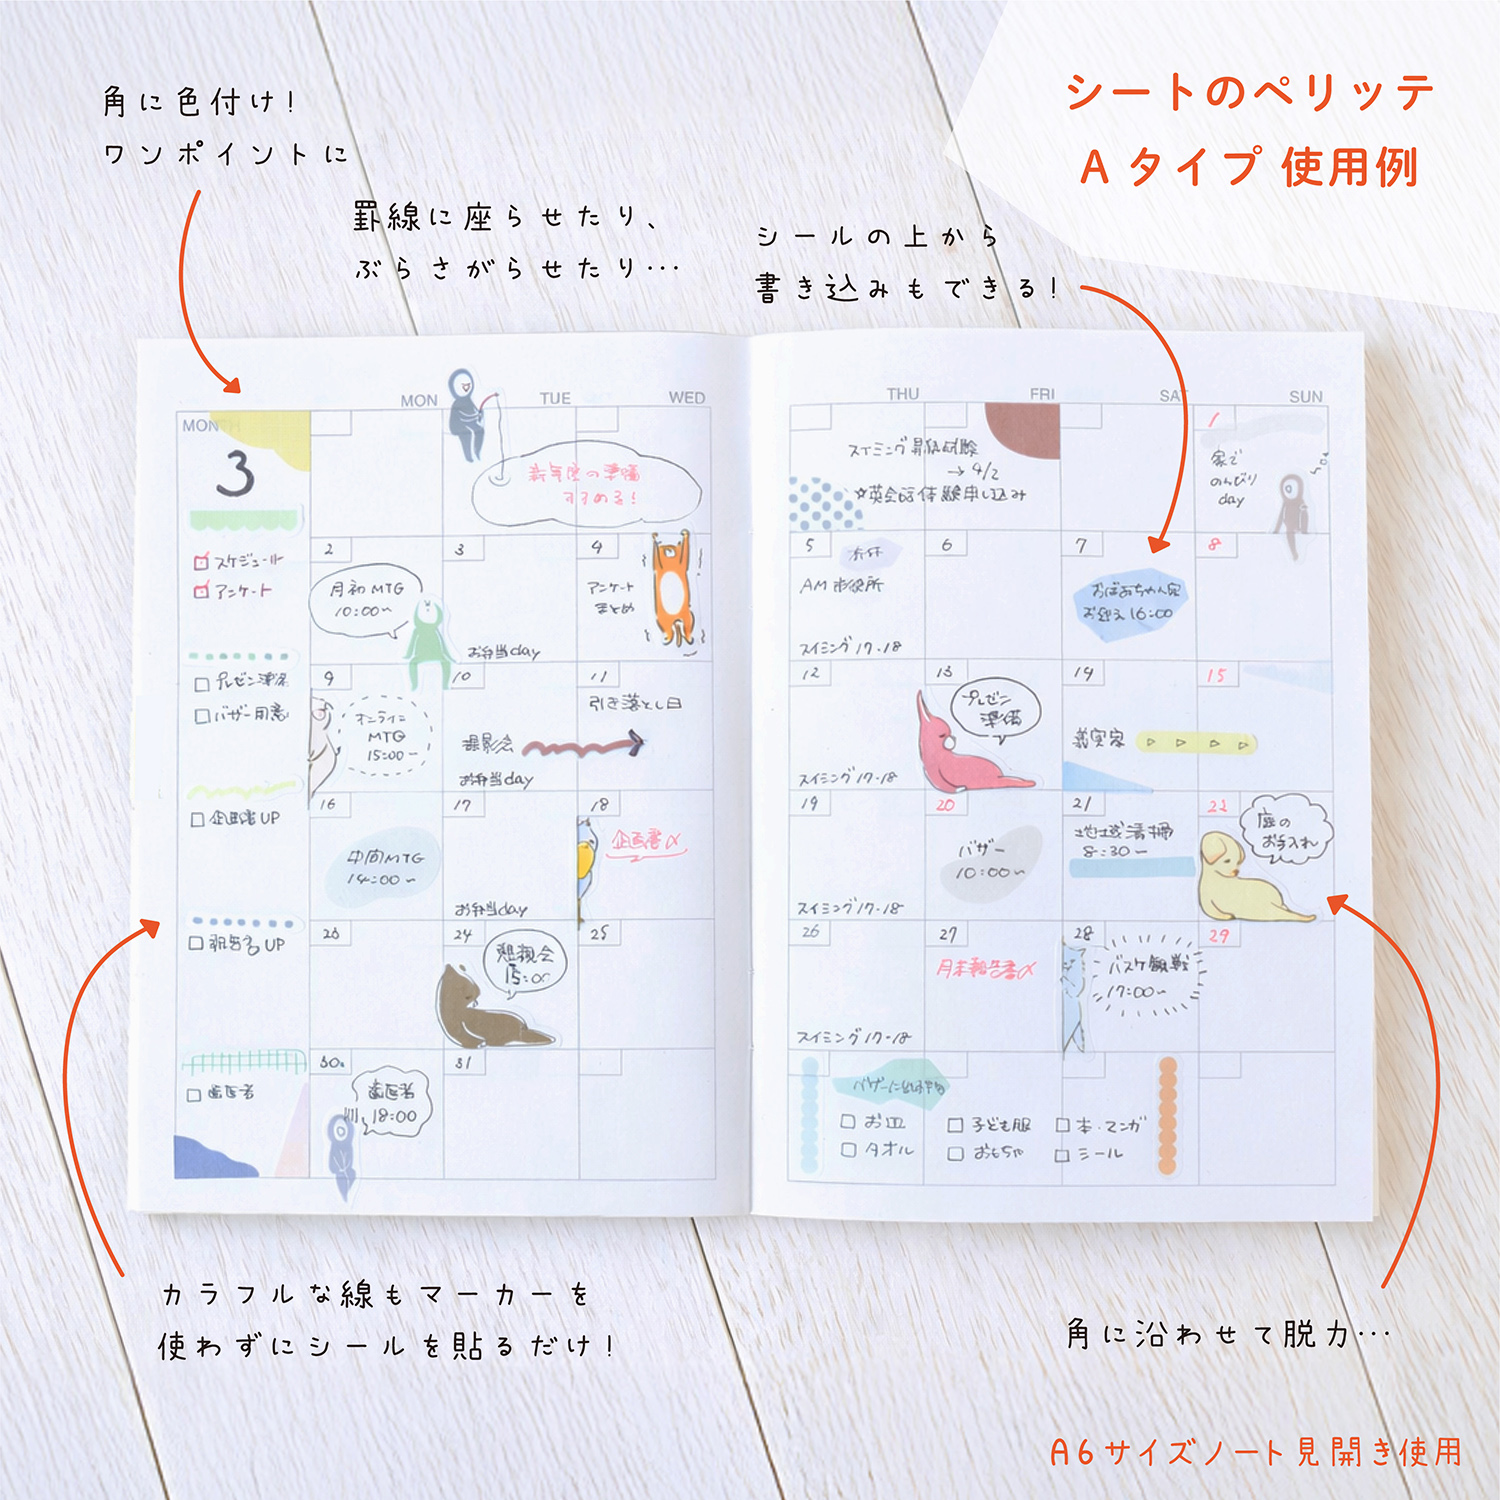 角に色付け!
ワンポイントに
罫線に座らせたり、
ぶらさがらせたり…
シールの上から
書き込みもできる!
シートのペリッテ
A タイプ 使用例
MONTH
3
スケジュール
アンケート
バザー用意
企画書 UP
報告書 UP
歯医者
MON
TUE
WED
新年度の準備
すすめる!
2
月初 MTG
10:00~
3
お弁当day
4
アンケート
まとめ
9
オンライン
MTG
15:00~
10
撮影会
お弁当day
11
引き落とし日
16
中間MTG
14:00~
17
お弁当day
18
企画書〆
23
24
懇親会
25
30
歯医者
18:00
31
THU
FRI
SAT
SUN
スイミング 昇級試験
→ 4/2
☆英会話体験申し込み
1
家で
のんびり
day
5
AM 市役所
スイミング 17-18
6
7
おばあちゃん家
お迎え 16:00
8
12
スイミング 17-18
13
プレゼン
準備
14
義実家
15
19
スイミング 17-18
20
バザー
10:00~
21
地域清掃
8:30~
22
庭の
お手入れ
26
スイミング 17-18
27
月末報告書〆
28
バスケ観戦
17:00~
29
お皿
子ども服
本・マンガ
タオル
おもちゃ
シール
カラフルな線もマーカーを
使わずにシールを貼るだけ!
角に沿わせて脱力…
A6サイズノート見開き使用